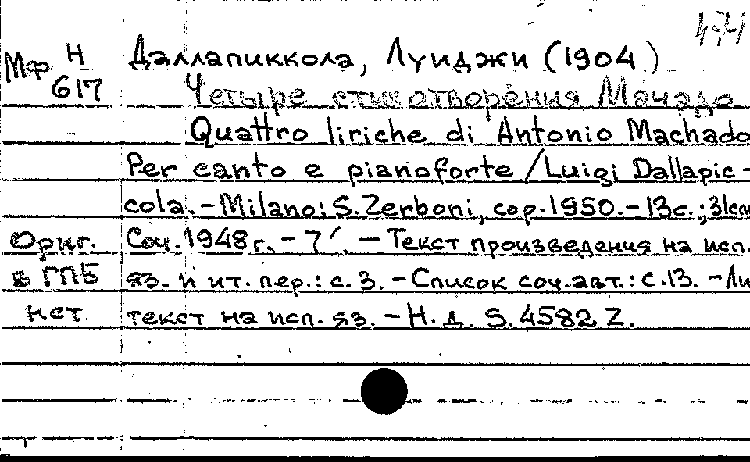 474
Мф Н 617 Даллапиккола, Луиджи (1904 )
Четыре стихотворения Мачадо
Quattro liriche di Antonio Machado
Per canto e pianoforte / Luigi Dallapic-
cola. - Milano: S. Zerboni, cop. 1950. - 13c.; 31cm
Ориг. Соч. 1948 г. - 7'. - Текст произведения на исп.
в ГПБ яз. и ит. пер.: с. 3. - Список соч. авт.: с. 13. - Ли
нет текст на исп. яз. - Н. д. S. 4582 Z.